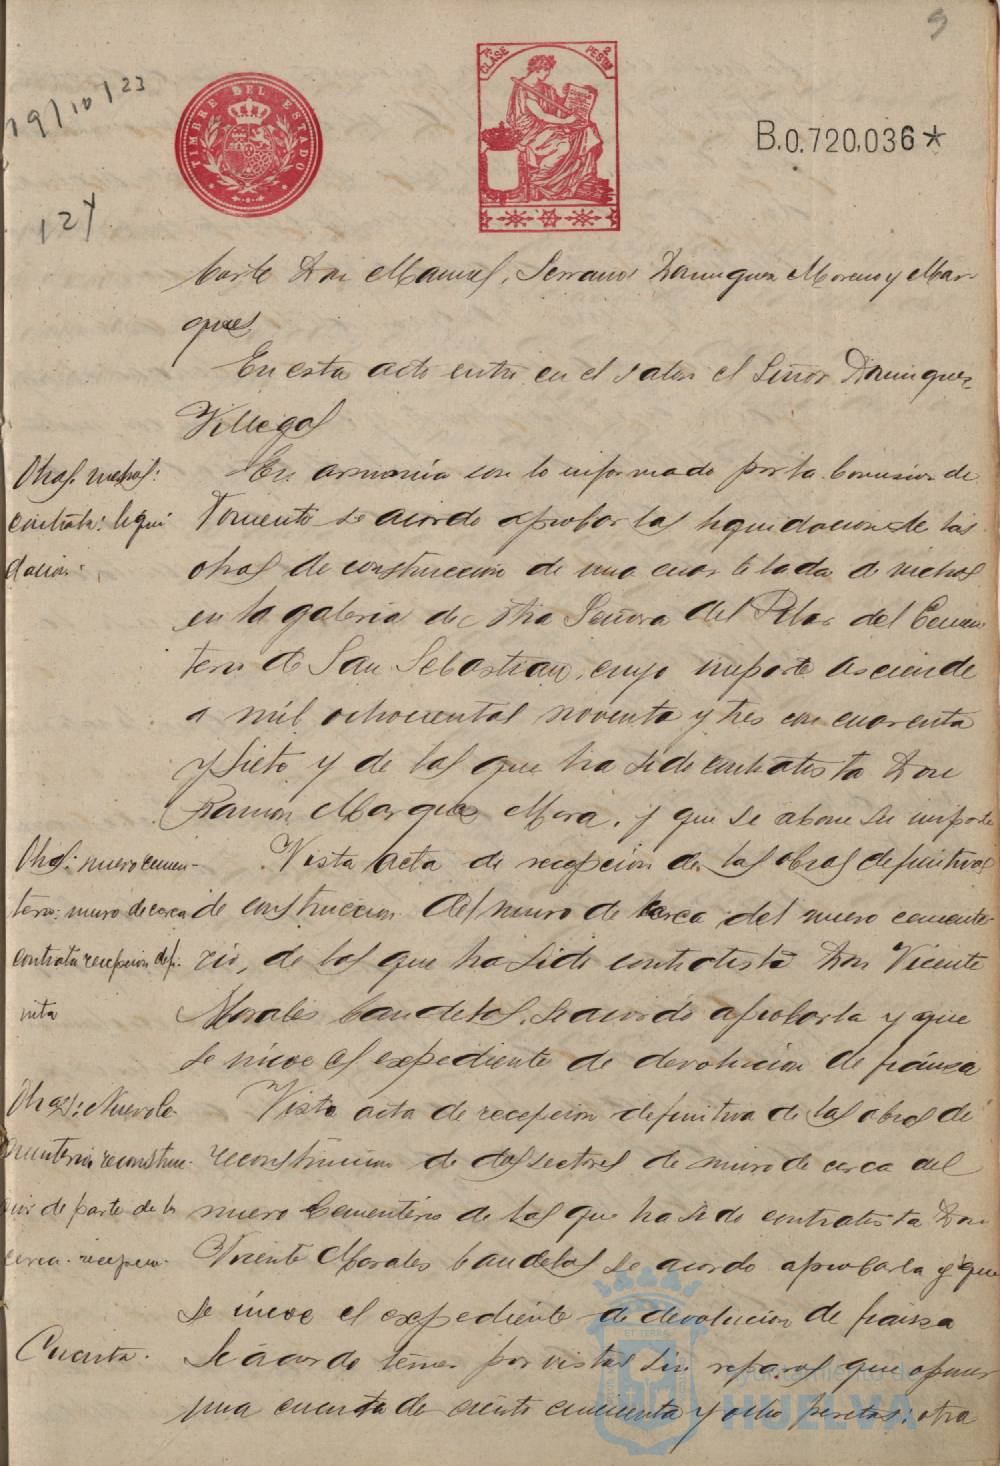 9
19/10/23
TIMBRE DEL ESTADO
7ª CLASE
2 PESETAS
B.0.720,036*
124
Don Manuel, Serrano Dominguez Moreno y Mar-
ques
En esta acto entro en el salon el Señor Dominguez
Villegas
Obras nichos:
contrata: liqui
dacion.
En armonia con lo informado por la Comision de
Fomento se acordo aprobar las liquidacion de las
obras de construccion de una cuartelada de nichos
en la galeria de Ntra Señora del Pilar del Cemen
terio de San Sebastian, cuyo importe asciende
a mil ochocientas noventa y tres con cuarenta
y siete y de las que ha sido contratista Don
Ramon Marquez Mora, y que se abone su importe
Obras: nuevo cemen-
terio: muro de cerca
contrata recepcion defi-
nitiva
Vista acta de recepcion de las obras definitivas
de construccion del muro de cerca del nuevo cemente-
rio, de las que ha sido contratista Don Vicente
Morales Candelas, se acordo aprobarla y que
se inicie el expediente de devolucion de fianza
Obras: Nuevo Ce-
menterio reconstruc-
cion de parte de la
cerca. recepcion.
Vista acta de recepcion definitiva de las obras de
reconstruccion de dos sectores de muro de cerca del
nuevo Cementerio de las que ha sido contratista Don
Vicente Morales Candelas se acordo aprobarla y que
se inicie el expediente de devolucion de fianza
Cuenta.
Se acordo tener por vistas sin reparos que oponer
una cuenta de ciento cincuenta y ocho pesetas: otra
Ayuntamiento de
HUELVA